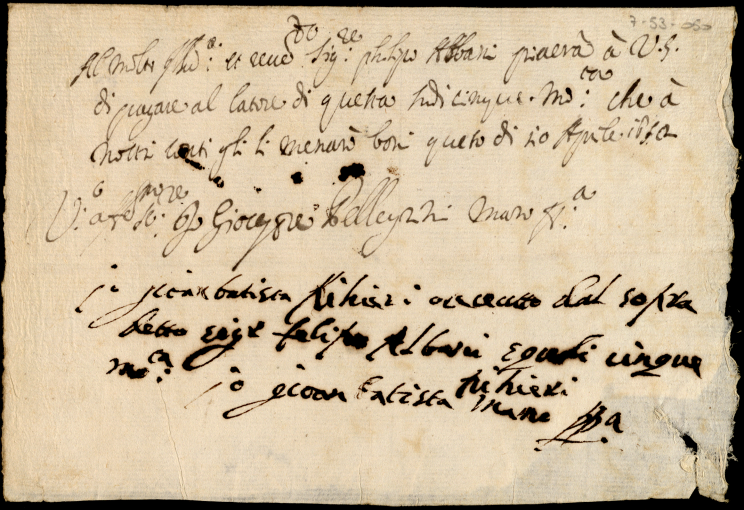 7-53-050
Al Molto Ill.re et reve.do Sig.re philipo Albani piacerà à V.S.
di pagare al latore di questa scudi cinque. Mo.ta che à
nostri conti gli li menarò boni questo di 20 Aprile.
Gioseppe Pellegrini mano
io gioanbatista Richieri o receuto dal sopra
detto sigr felipo Albani scudi cinque
mo.ta
io gioanbatista Richieri
mano ppa